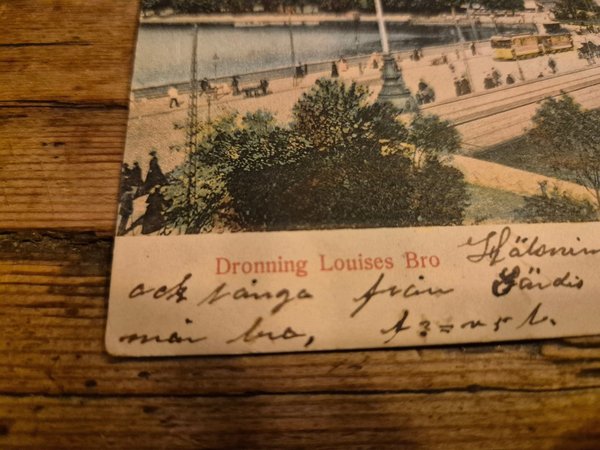 Dronning Louises Bro
Hälsnin
och många från Gärdis
mår bra,